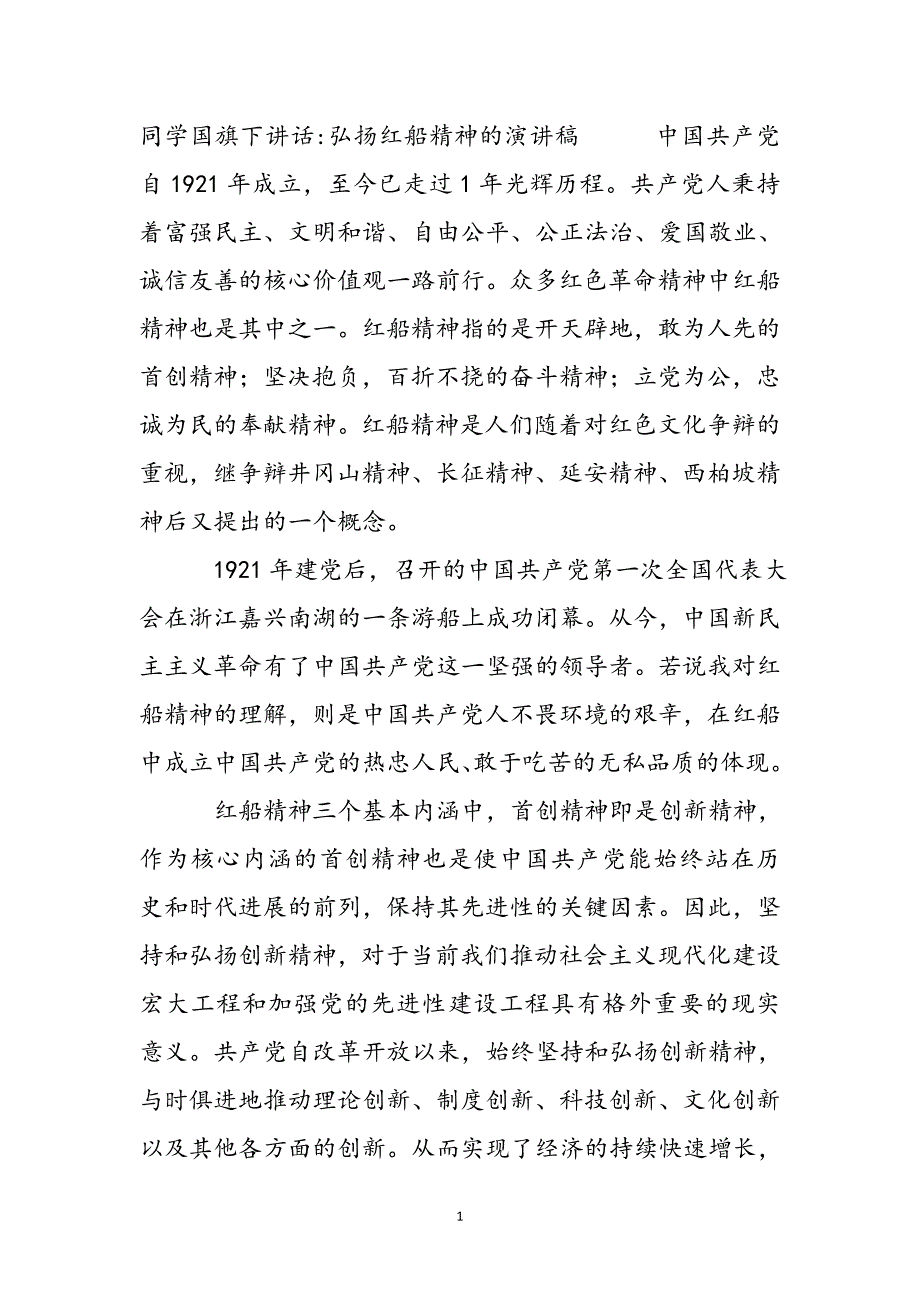 同学国旗下讲话:弘扬红船精神的演讲稿 中国共产党
自1921年成立，至今已走过1年光辉历程。共产党人秉持
着富强民主、文明和谐、自由公平、公正法治、爱国敬业、
诚信友善的核心价值观一路前行。众多红色革命精神中红船
精神也是其中之一。红船精神指的是开天辟地，敢为人先的
首创精神；坚决抱负，百折不挠的奋斗精神；立党为公，忠
诚为民的奉献精神。红船精神是人们随着对红色文化争辩的
重视，继争辩井冈山精神、长征精神、延安精神、西柏坡精
神后又提出的一个概念。
1921年建党后，召开的中国共产党第一次全国代表大
会在浙江嘉兴南湖的一条游船上成功闭幕。从今，中国新民
主主义革命有了中国共产党这一坚强的领导者。若说我对红
船精神的理解，则是中国共产党人不畏环境的艰辛，在红船
中成立中国共产党的热忠人民、敢于吃苦的无私品质的体现。
红船精神三个基本内涵中，首创精神即是创新精神，
作为核心内涵的首创精神也是使中国共产党能始终站在历
史和时代进展的前列，保持其先进性的关键因素。因此，坚
持和弘扬创新精神，对于当前我们推动社会主义现代化建设
宏大工程和加强党的先进性建设工程具有格外重要的现实
意义。共产党自改革开放以来，始终坚持和弘扬创新精神，
与时俱进地推动理论创新、制度创新、科技创新、文化创新
以及其他各方面的创新。从而实现了经济的持续快速增长，
1